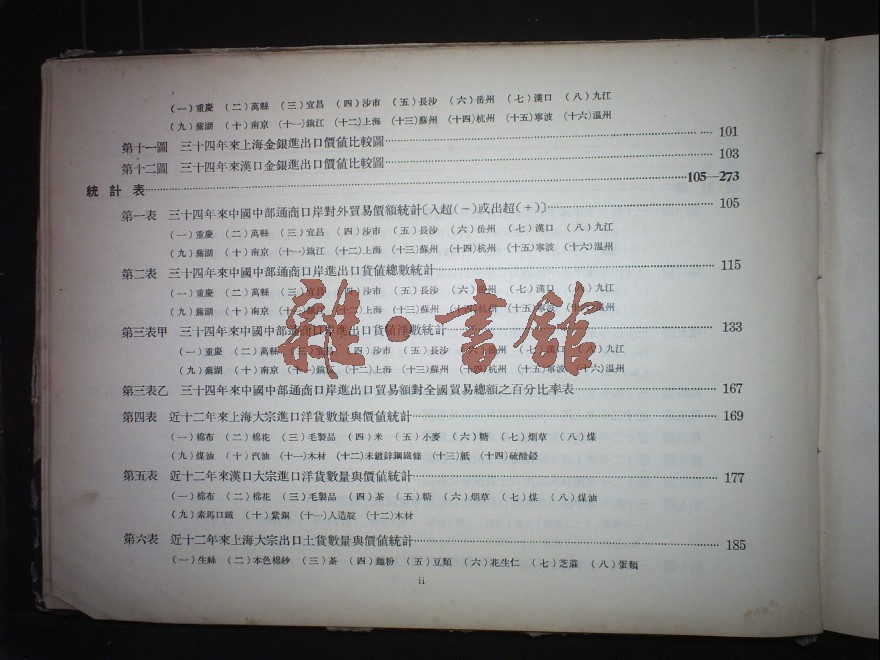 (一)重慶 (二)萬縣 (三)宜昌 (四)沙市 (五)長沙 (六)岳州 (七)漢口 (八)九江
(九)蕪湖 (十)南京 (十一)鎮江 (十二)上海 (十三)蘇州 (十四)杭州 (十五)寧波 (十六)温州
第十一圖 三十四年來上海金銀進出口價値比較圖 101
第十二圖 三十四年來漢口金銀進出口價値比較圖 103
統計表 105—273
第一表 三十四年來中國中部通商口岸對外貿易價額統計〔入超(−)或出超(+)〕 105
(一)重慶 (二)萬縣 (三)宜昌 (四)沙市 (五)長沙 (六)岳州 (七)漢口 (八)九江
(九)蕪湖 (十)南京 (十一)鎮江 (十二)上海 (十三)蘇州 (十四)杭州 (十五)寧波 (十六)温州
第二表 三十四年來中國中部通商口岸進出口貨値總數統計 115
(一)重慶 (二)萬縣 (三)宜昌 (四)沙市 (五)長沙 (六)岳州 (七)漢口 (八)九江
(九)蕪湖 (十)南京 (十一)鎮江 (十二)上海 (十三)蘇州 (十四)杭州 (十五)寧波 (十六)温州
雜·書館
第三表甲 三十四年來中國中部通商口岸進出口貨値淨數統計 133
(一)重慶 (二)萬縣 (三)宜昌 (四)沙市 (五)長沙 (六)岳州 (七)漢口 (八)九江
(九)蕪湖 (十)南京 (十一)鎮江 (十二)上海 (十三)蘇州 (十四)杭州 (十五)寧波 (十六)温州
第三表乙 三十四年來中國中部通商口岸進出口貿易額對全國貿易總額之百分比率表 167
第四表 近十二年來上海大宗進口洋貨數量與價値統計 169
(一)棉布 (二)棉花 (三)毛製品 (四)米 (五)小麥 (六)糖 (七)烟草 (八)煤
(九)煤油 (十)汽油 (十一)木材 (十二)未鍍鋅鋼鐵條 (十三)紙 (十四)硫酸錏
第五表 近十二年來漢口大宗進口洋貨數量與價値統計 177
(一)棉布 (二)棉花 (三)毛製品 (四)茶 (五)糖 (六)烟草 (七)煤 (八)煤油
(九)素馬口鐵 (十)紫銅 (十一)人造靛 (十二)木材
第六表 近十二年來上海大宗出口土貨數量與價値統計 185
(一)生絲 (二)本色棉紗 (三)茶 (四)麵粉 (五)豆類 (六)花生仁 (七)芝蔴 (八)蛋類
ii